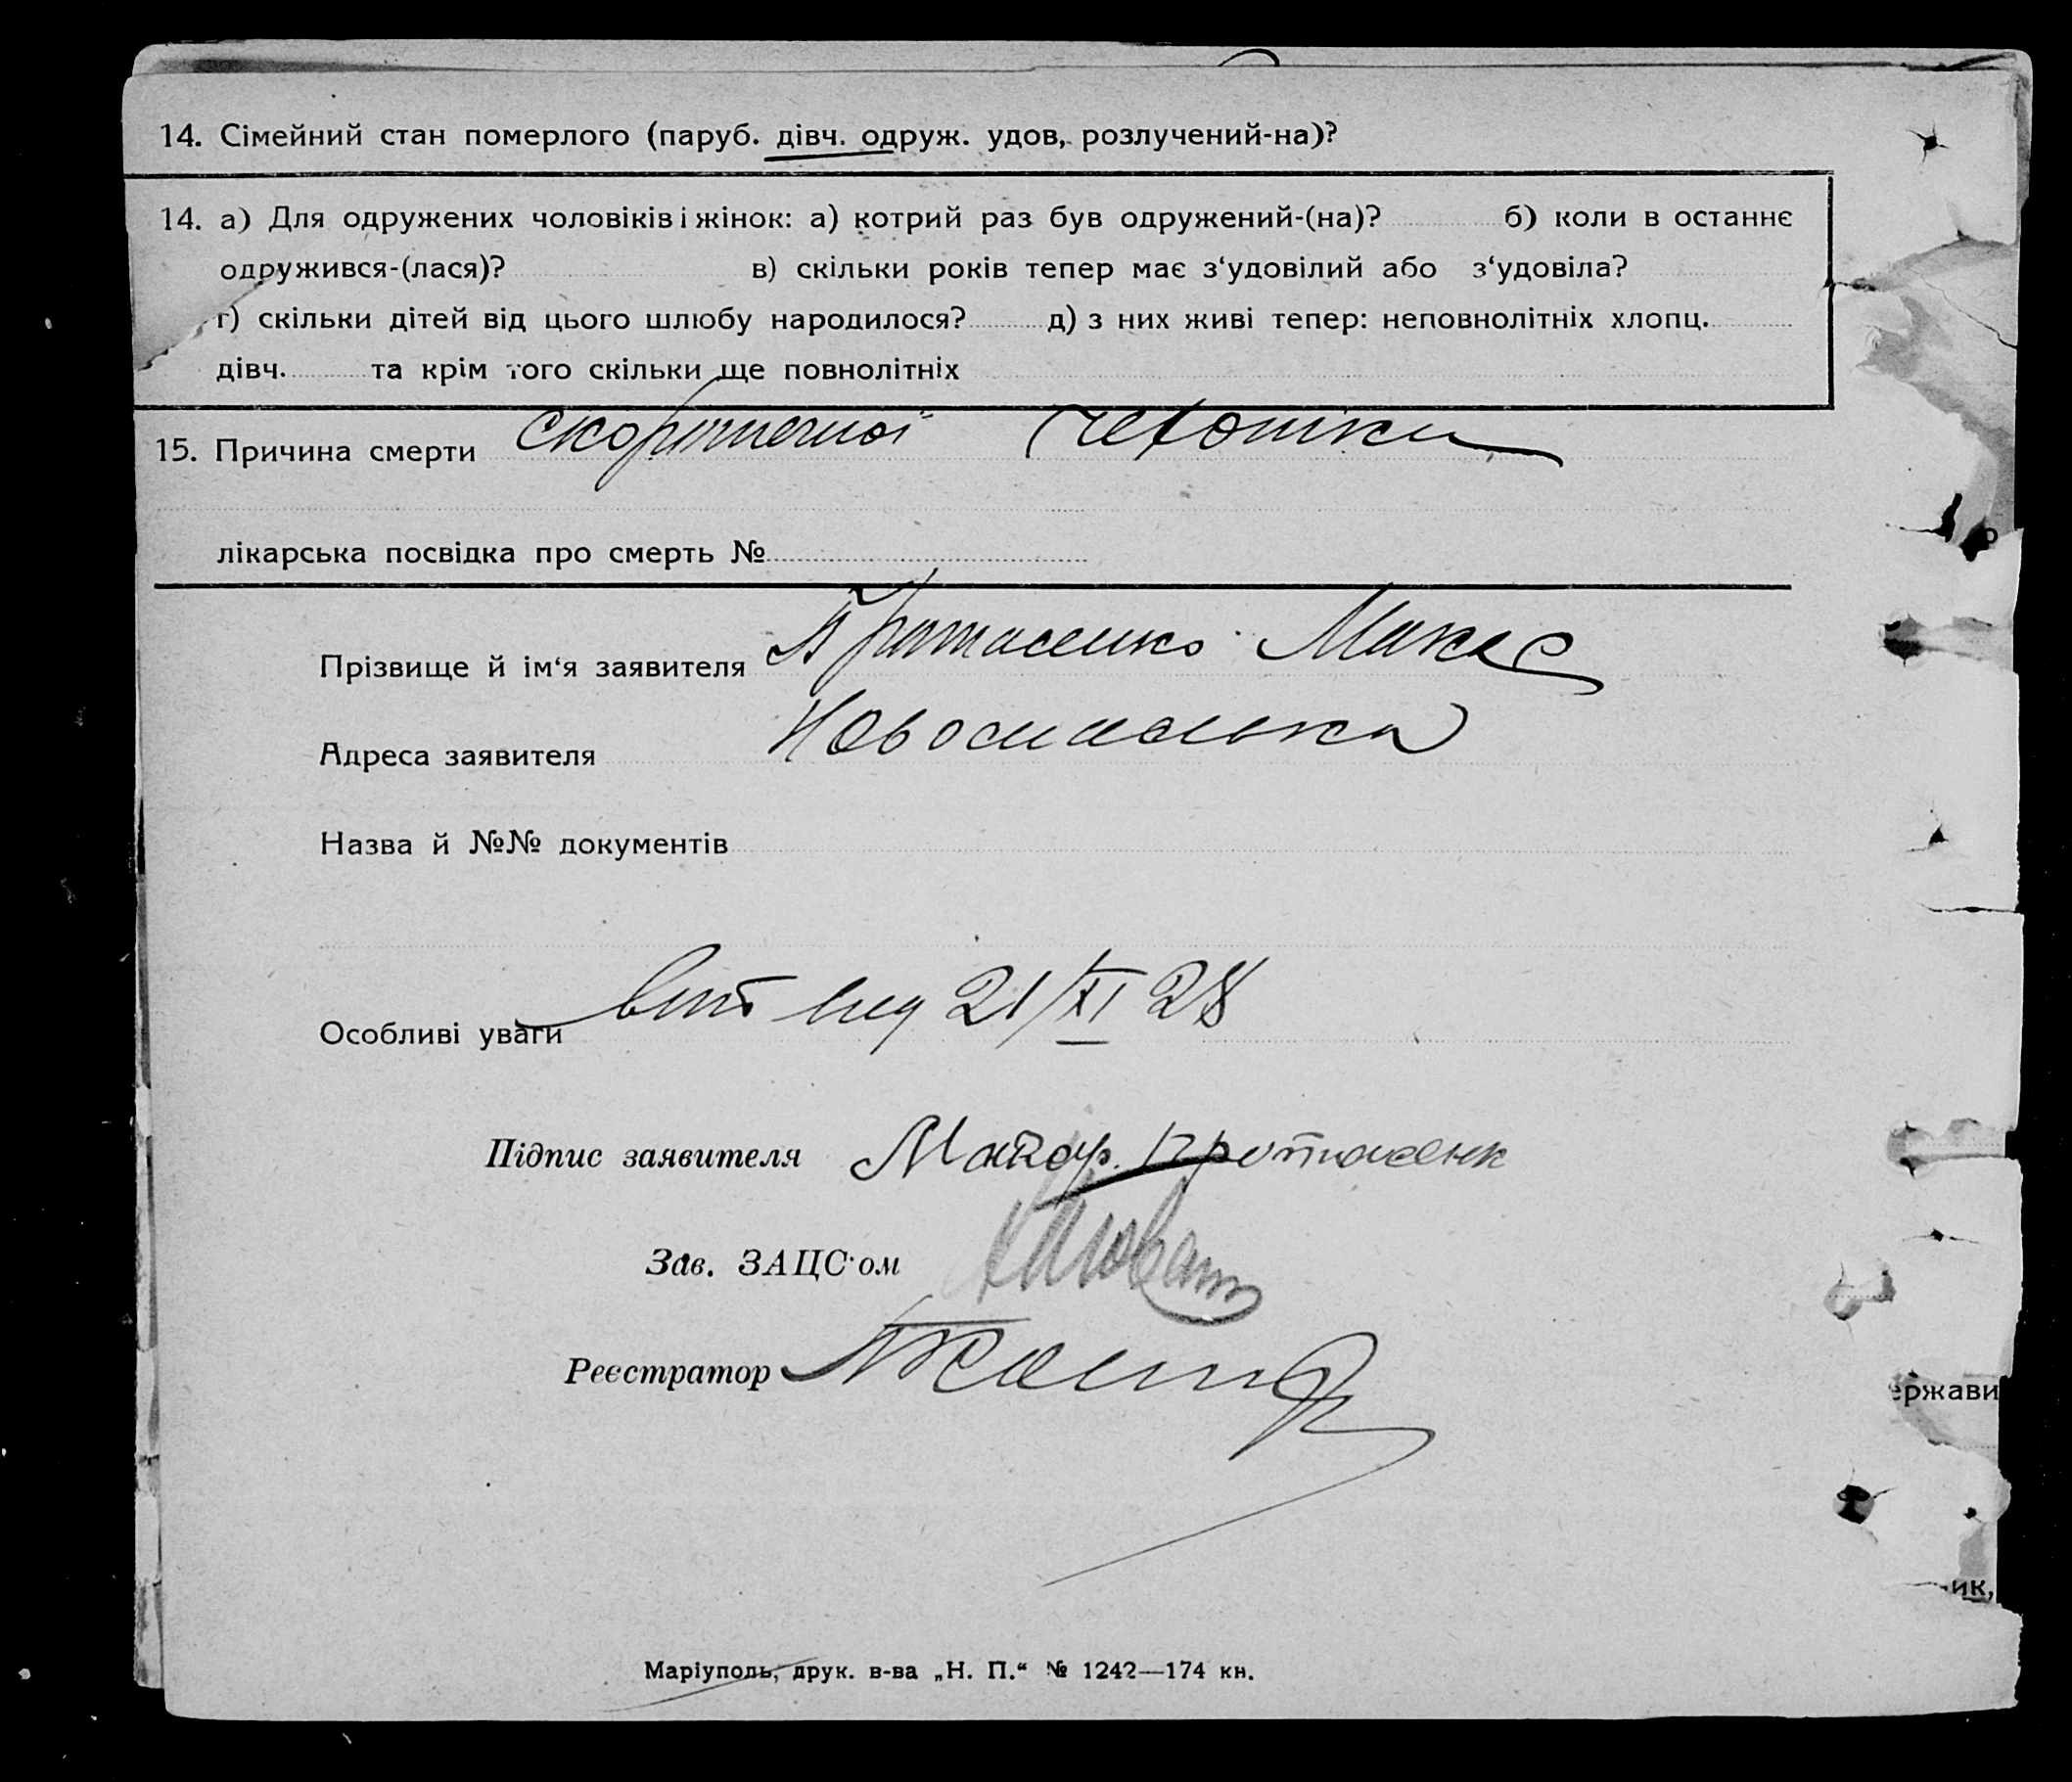 14. Сімейний стан померлого (паруб. дівч. одруж. удов, розлучений-на)?
14. а) Для одружених чоловіків і жінок: а) котрий раз був одружений-(на)? б) коли в останнє
одружився-(лася)? в) скільки років тепер має з‘удовілий або з‘удовіла?
г) скільки дітей від цього шлюбу народилося? д) з них живі тепер: неповнолітніх хлопц.
дівч. та крім того скільки ще повнолітніх
15. Причина смерти скоротечної
лікарська посвідка про смерть №
Прізвище й ім‘я заявителя Протасенко
Адреса заявителя
Назва й №№ документів
Особливі уваги 21/XI 28
Підпис заявителя Макар. Протасенк
Зав. ЗАЦС‘ом
Реєстратор
ержави
ик,
Маріуполь, друк. в-ва „Н. П.“ № 1242—174 кн.